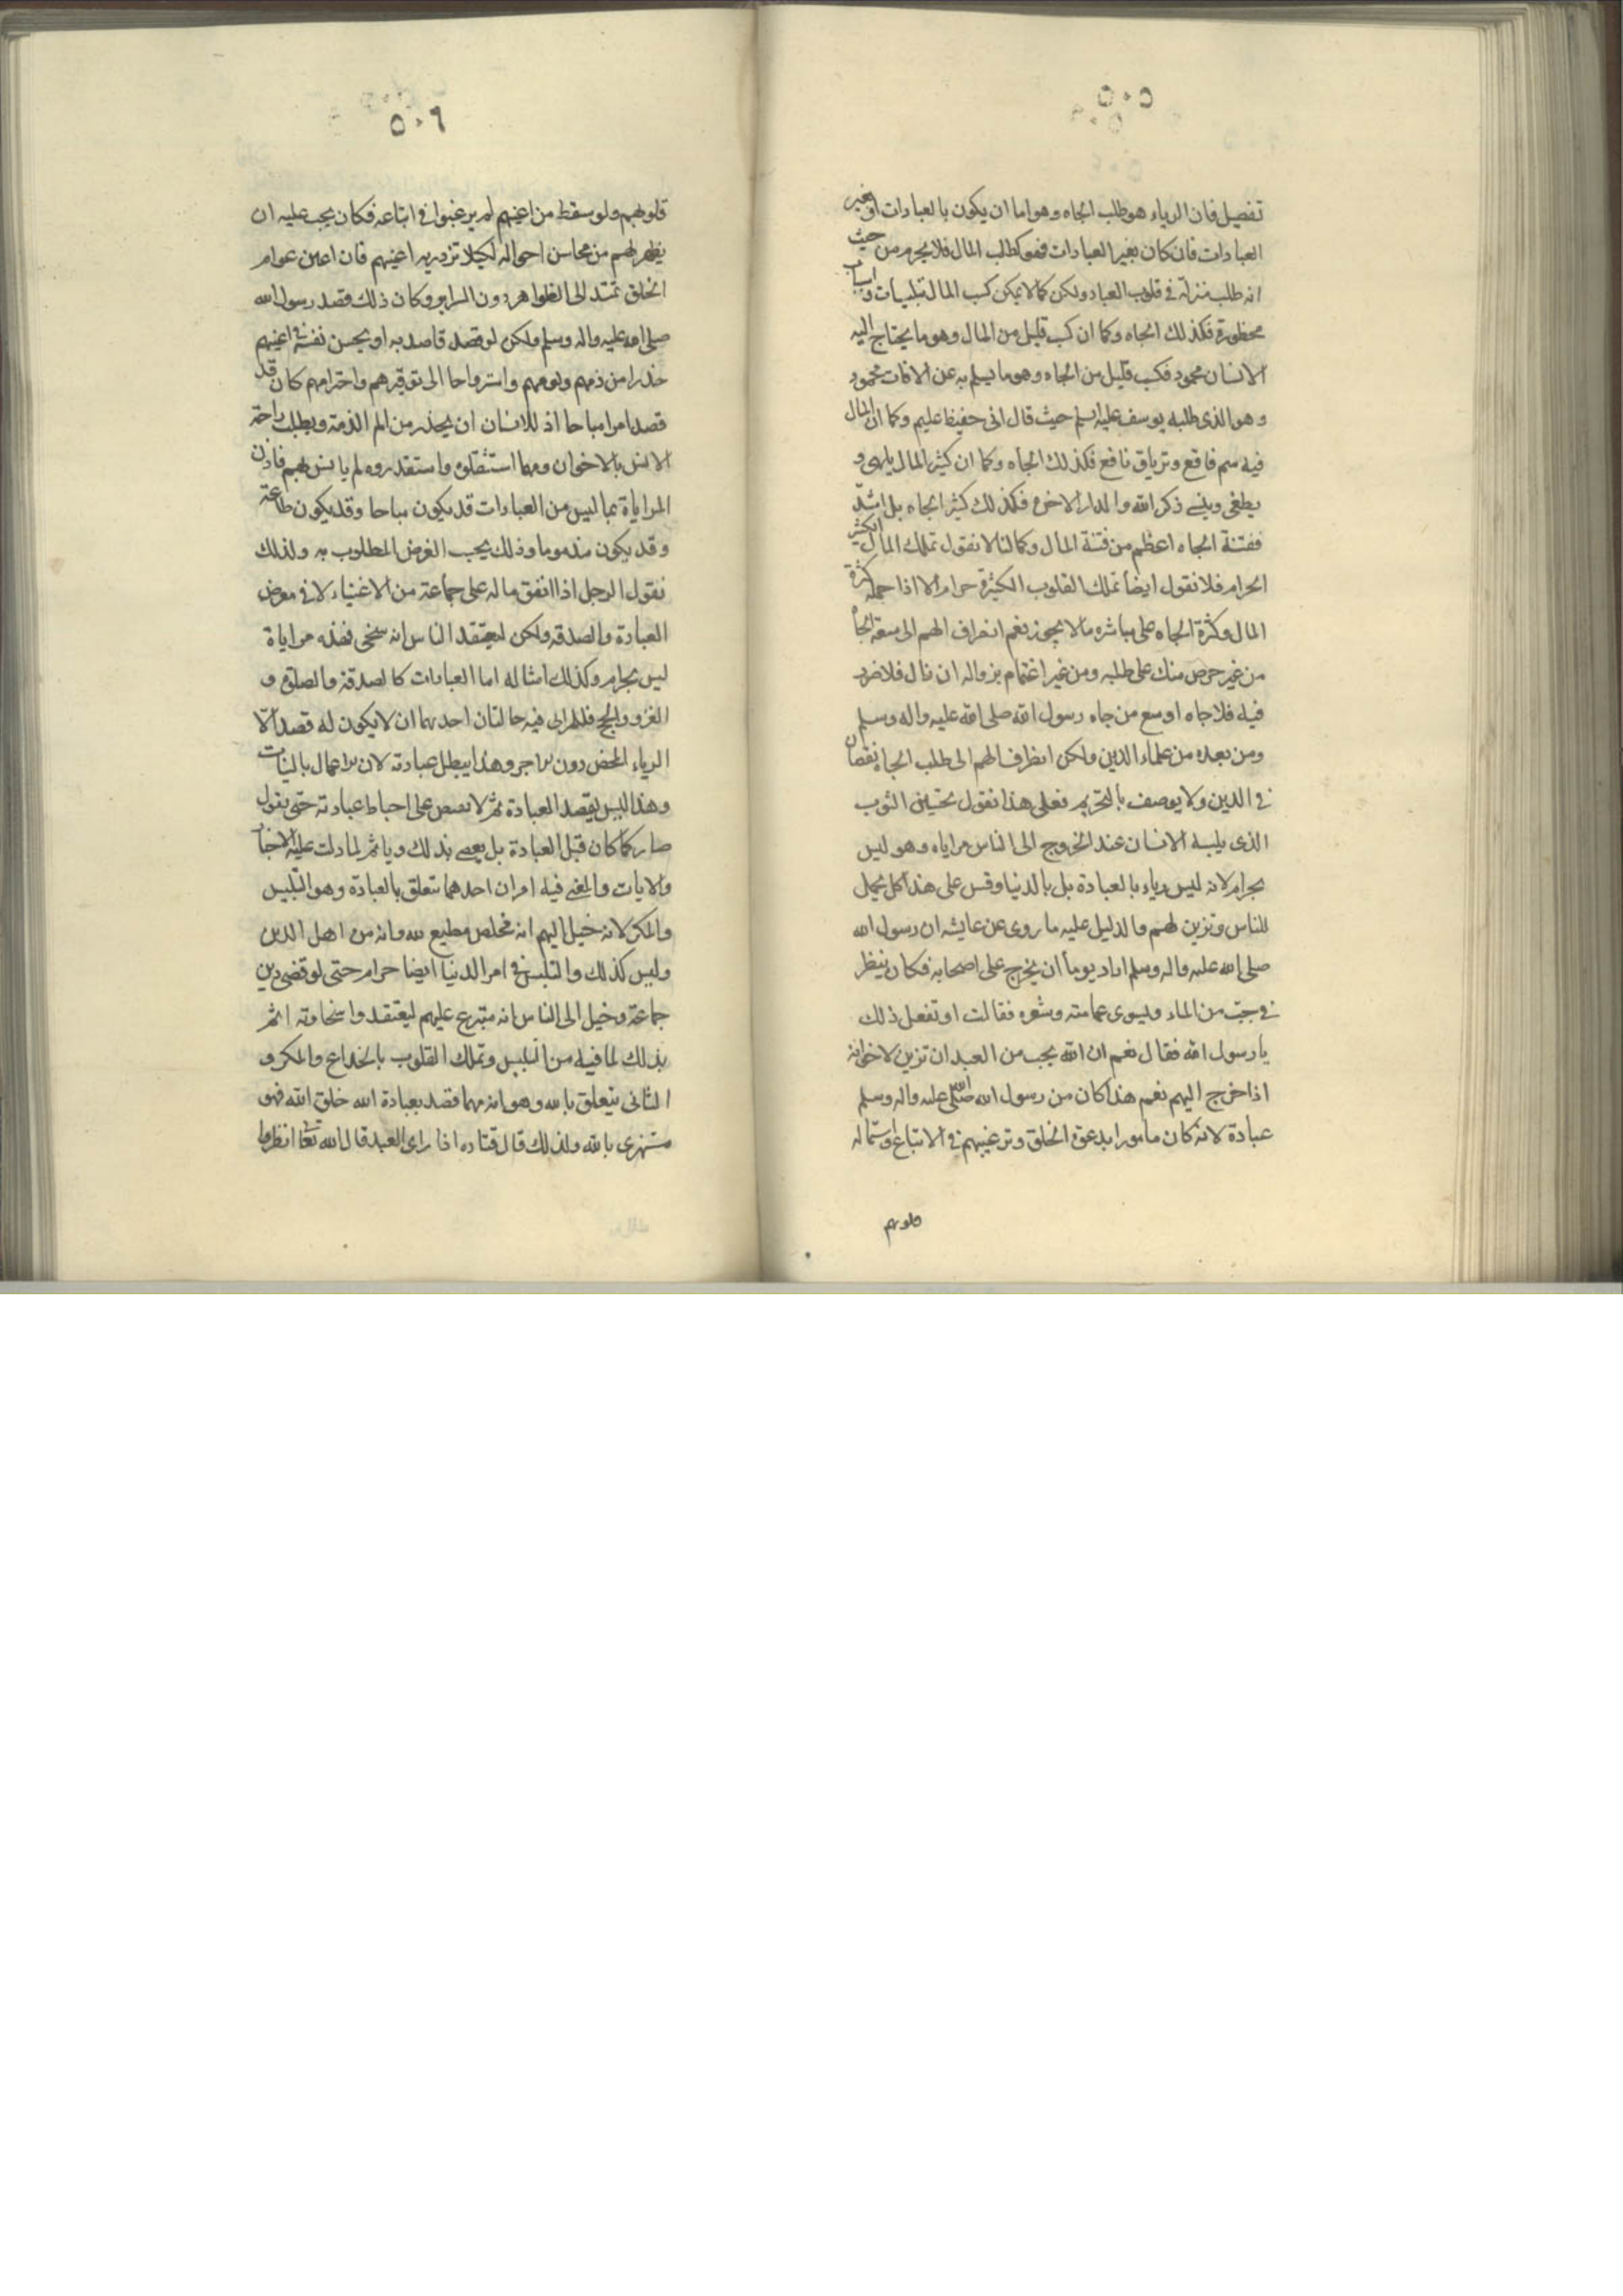 ٥٠٥
تفصيل فان الرياء هو طلب الجاه وهو اما ان يكون بالعبادات او بغير
العبادات فان كان بغير العبادات فهو كطلب المال فلا يحرم من حيث
انه طلب منزلة في قلوب العباد ولكن كما لا يمكن كسب المال بتلبيسات واسباب
محظورة فكذلك الجاه وكما ان كسب قليل من المال وهو ما يحتاج اليه
الانسان محمود فكسب قليل من الجاه وهو ما يسلم به عن الافات محمود
وهو الذى طلبه يوسف عليه السلم حيث قال انى حفيظ عليم وكما ان المال
فيه سم فاقع وترياق نافع فكذلك الجاه وكما ان كثير المال يلهى و
يطغى وينسى ذكر الله والدار الاخرة فكذلك كثير الجاه بل اشد
ففتنة الجاه اعظم من فتنة المال وكما انا لا نقول تملك المال الكثير
الحرام فلا نقول ايضا تملك القلوب الكثيرة حرام الا اذا حمله كثرة
المال وكثرة الجاه على مباشرة ما لا يجوز نعم انصراف الهم الى سعة الجاه
من غير حرص منك على طلبه ومن غير اغتمام بزواله ان نال فلا ضرر
فيه فلا جاه اوسع من جاه رسول الله صلى الله عليه واله وسلم
ومن بعده من علماء الدين ولكن انظراف الهم الى طلب الجاه نقصان
في الدين ولا يوصف بالتحريم فعلى هذا نقول تحسين الثوب
الذى يلبسه الانسان عند الخروج الى الناس مراياه وهو ليس
بحرام لانه ليس رياء بالعبادة بل بالدنيا وقس على هذا كل تجمل
للناس وتزين لهم والدليل عليه ما روى عن عايشه ان رسول الله
صلى الله عليه واله وسلم اراد يوما أن يخرج على اصحابه فكان ينظر
في جب من الماء ويسوى عمامته وشعره فقالت او تفعل ذلك
يا رسول الله فقال نعم ان الله يحب من العبد ان تزين لاخوانه
اذا خرج اليهم نعم هذا كان من رسول الله صلى الله عليه واله وسلم
عبادة لانه كان مامورا بدعوة الخلق وترغيبهم في الاتباع واستماله
قلوبهم
٥٠٦
قلوبهم ولو سقط من اعينهم لم يرغبوا في اتباعه فكان يجب عليه ان
يظهر لهم من محاسن احواله لكيلا تزدريه اعينهم فان اعين عوام
الخلق تمتد الى الظواهر دون السراير وكان ذلك قصد رسول الله
صلى الله عليه واله وسلم ولكن لو قصد قاصد به او يحسن نفسه في اعينهم
حذرا من ذمهم ولومهم واسترواحا الى توقيرهم واحترامهم كان قد
قصد امرا مباحا اذ للانسان ان يحذر من الم الذمة ويطلب راحة
الانس بالاخوان ومهما استثقلوه واستقذروه لم يانس بهم فاذن
المراياة بما ليس من العبادات قد يكون مباحا وقد يكون طاعة
وقد يكون مذموما وذلك بحسب الغرض المطلوب به ولذلك
نقول الرجل اذا انفق ماله على جماعة من الاغنياء لا في معرض
العبادة والصدقه ولكن ليعتقد الناس انه سخى فهذه مراياة
ليس بحرام وكذلك امثاله اما العبادات كالصدقة والصلوة و
الغزو والحج فللمرائى فيه حالتان احديهما ان لا يكون له قصد الا
الرياء المحض دون الاجر وهذا يبطل عبادته لان الاعمال بالنيات
وهذا ليس بقصد العبادة ثم لا يقتصر على احباط عبادته حتى نقول
صار كما كان قبل العبادة بل يعصى بذلك وياثم لما دلت عليه الاخبار
والايات والمعنى فيه امران احدهما يتعلق بالعبادة وهو التلبيس
والمكر لانه خيل اليهم انه مخلص مطيع لله وانه من اهل الدين
وليس كذلك والتلبيس في امر الدنيا ايضا حرام حتى لو قضى دين
جماعة وخيل الى الناس انه متبرع عليهم ليعتقدوا سخاوته اثم
بذلك لما فيه من التلبيس وتملك القلوب بالخداع والمكر و
الثانى يتعلق بالله وهو انه مهما قصد بعبادة الله خلق الله فهو
مستهزى بالله ولذلك قال قتاده اذا راى العبد قال الله تعا انظروا